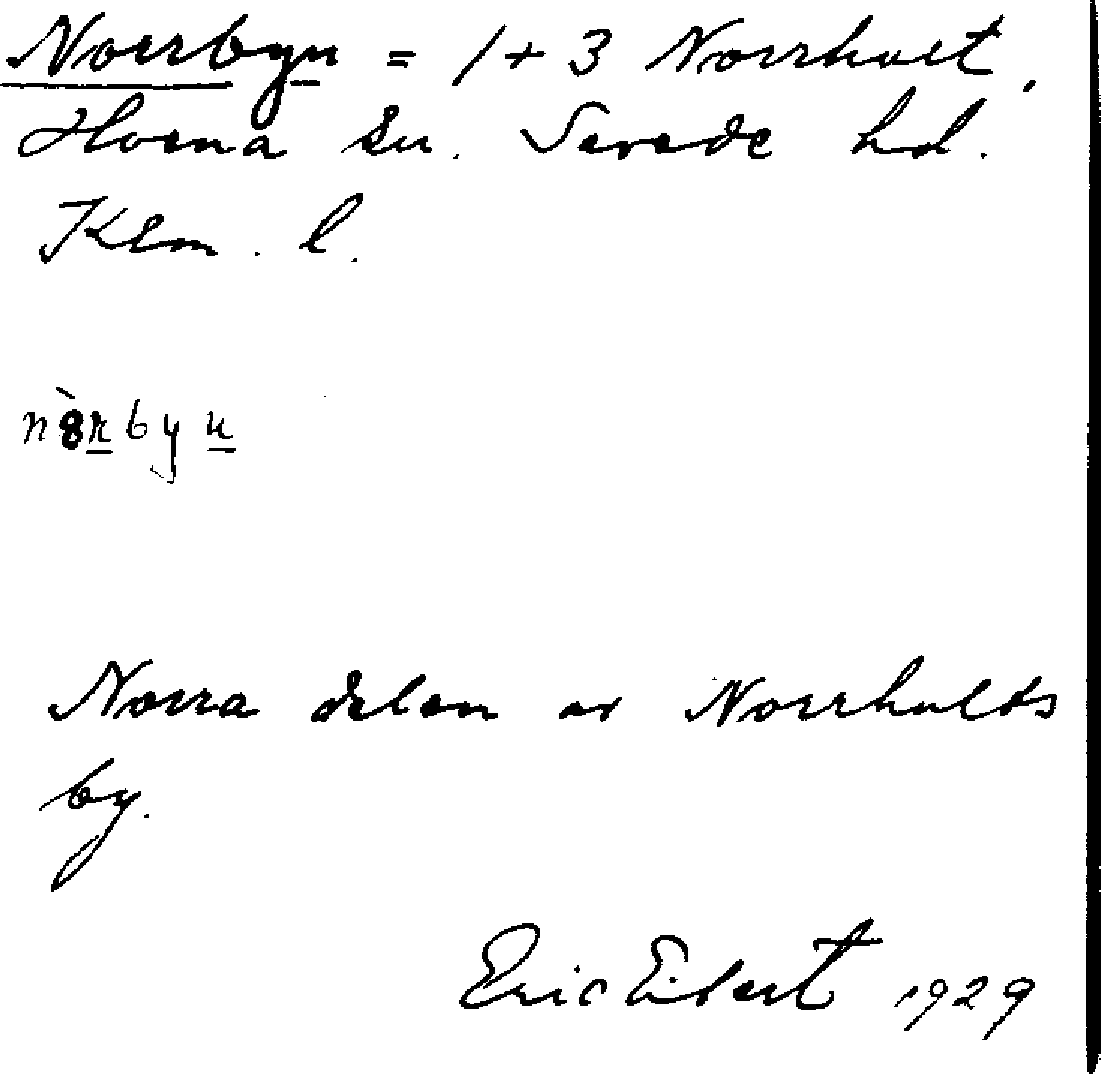 Norrbyn = 1 + 3 Norrhult,
Hvena sn. Sevede hd.
Klm. l.
Norra delen av Norrhults
by.
Eric Elbert 1929